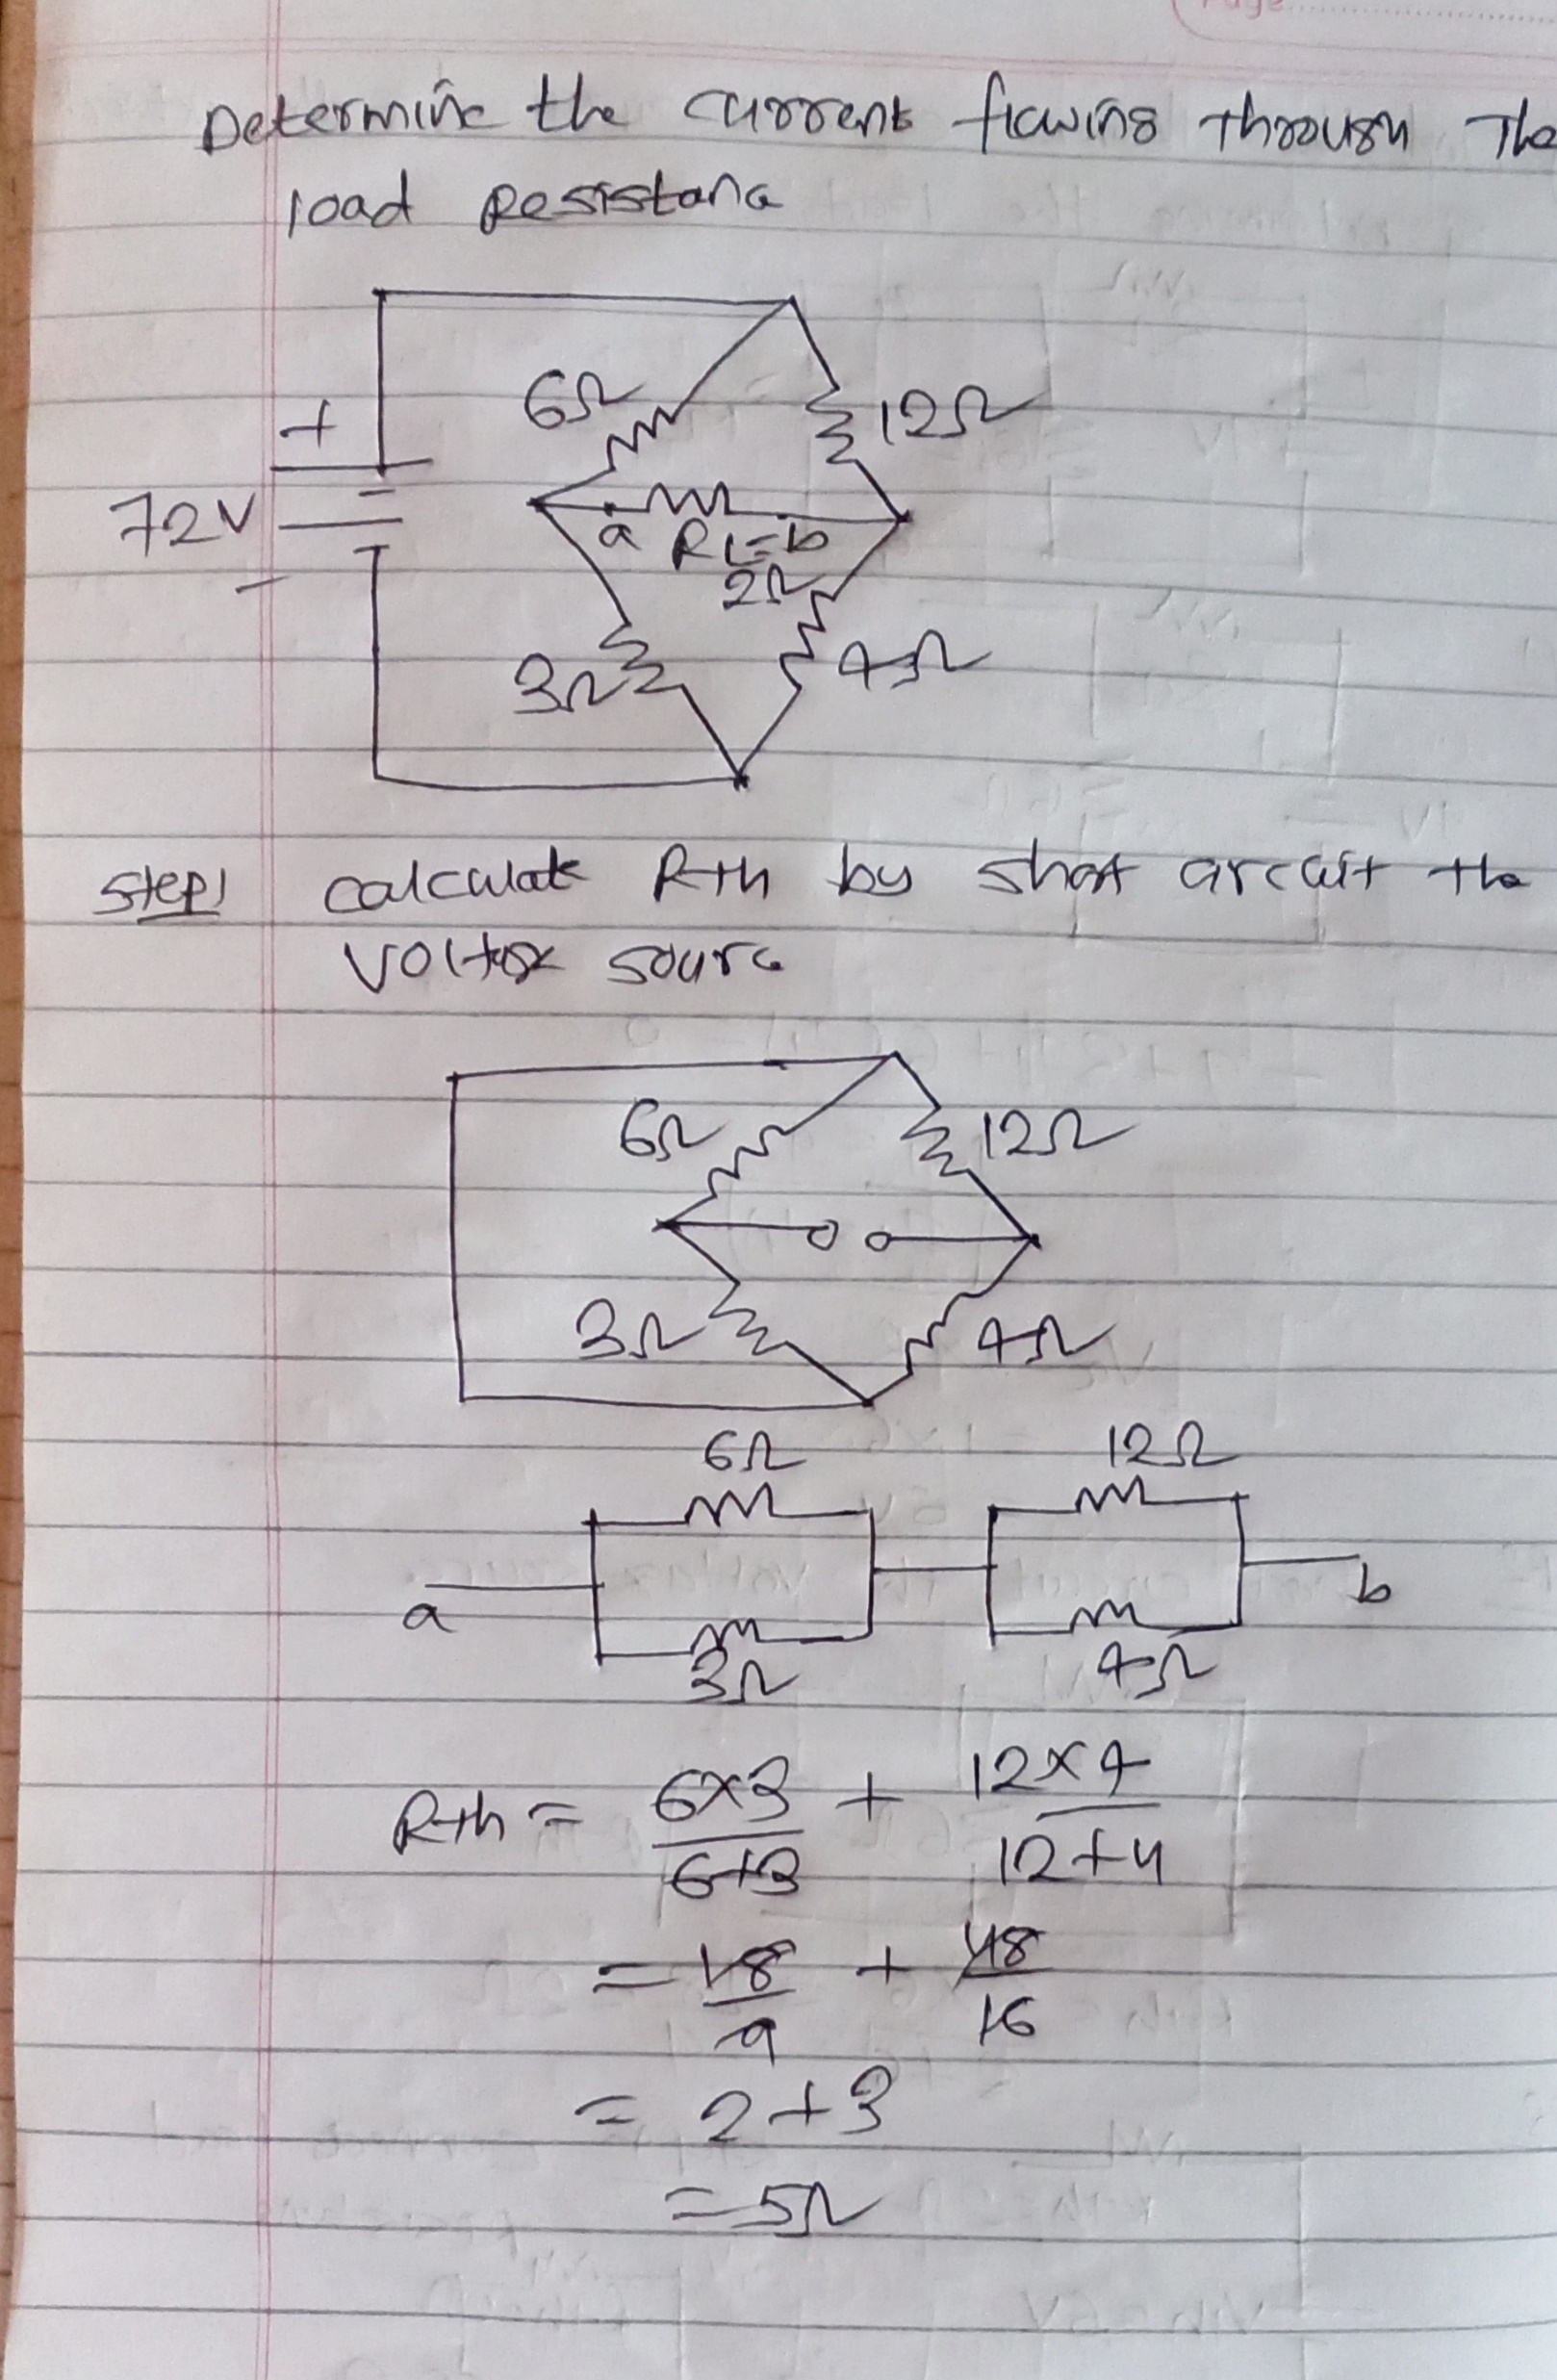 Page
Determine the current flowing through the
load Resistance
6Ω
12Ω
+
72V
a RL= b
2Ω
-
3Ω
4Ω
Step1 calculate Rth by short circuit the
voltage source
6Ω
12Ω
3Ω
4Ω
6Ω 12Ω
a b
3Ω 4Ω
Rth = 6×3/6+3 + 12×4/12+4
= 18/9 + 48/16
= 2+3
= 5Ω